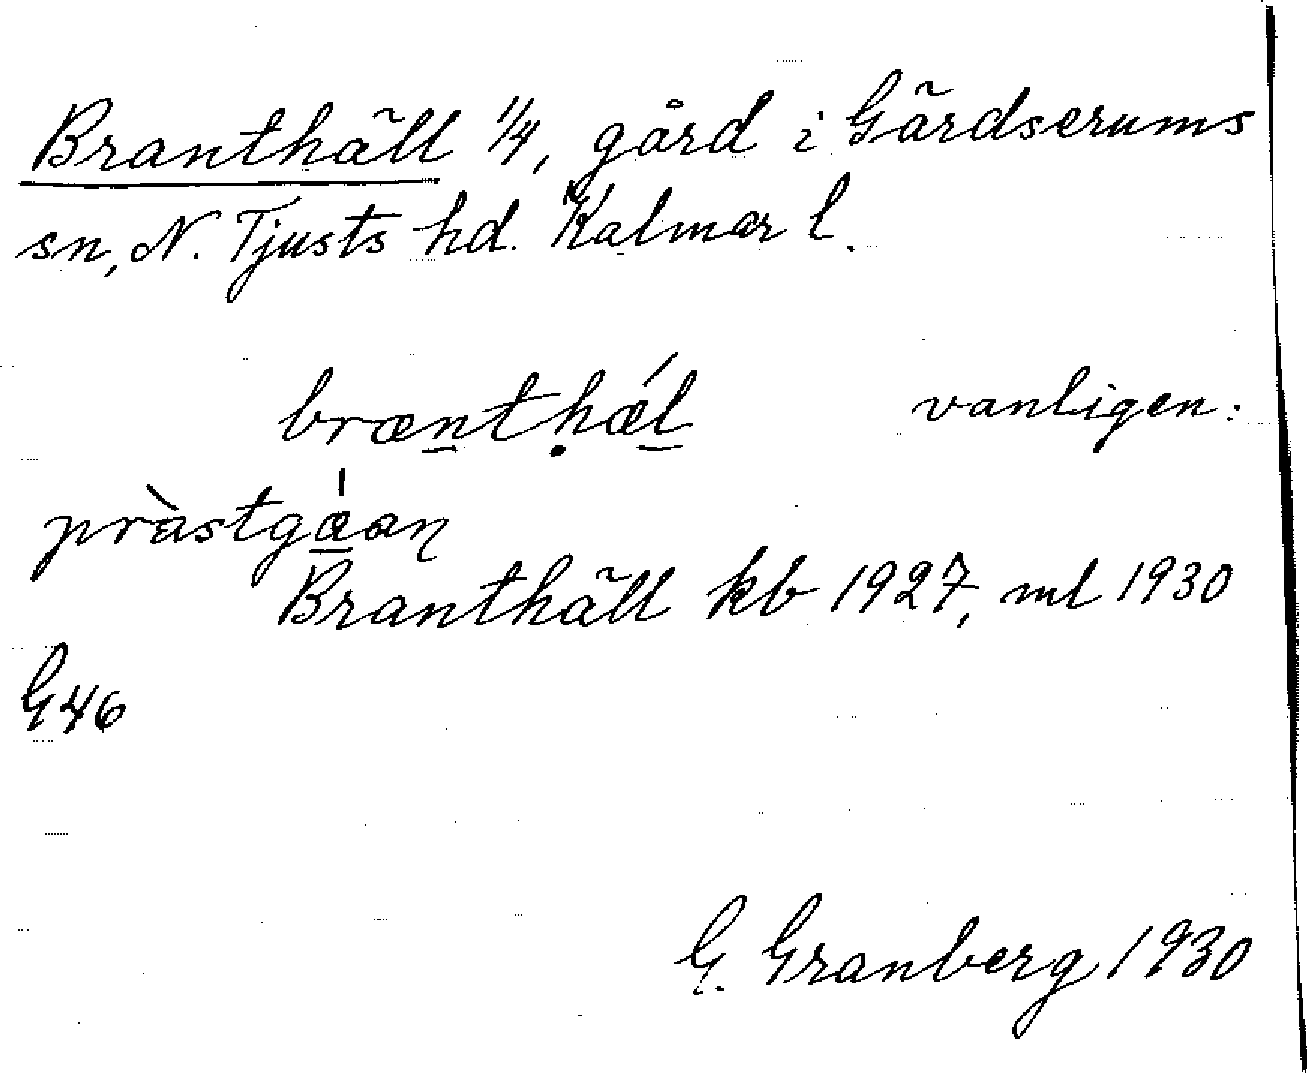 Branthäll 1/4, gård i Gärdserums
sn, N. Tjusts hd. Kalmar l.
brænthǽl vanligen:
pràstgǽan
Branthäll kb 1927, ml 1930
G46
G. Granberg 1930